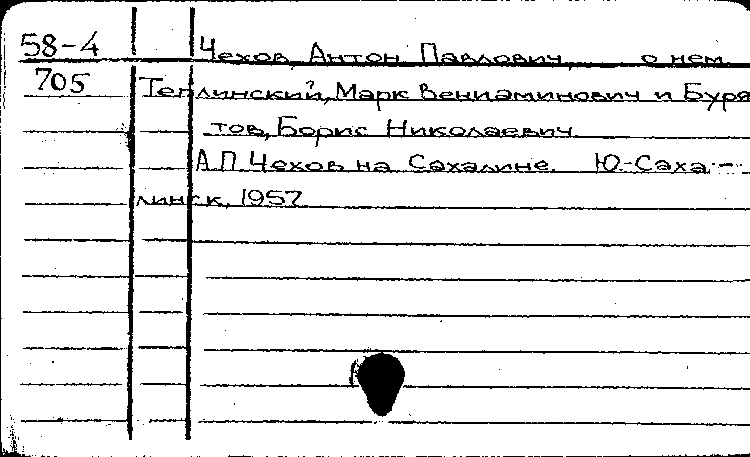 58-4 Чехов, Антон Павлович, о нем
705 Теплинский, Марк Вениаминович и Буря
тов, Борис Николаевич.
А.П. Чехов на Сахалине. Ю-Саха-
линск, 1957